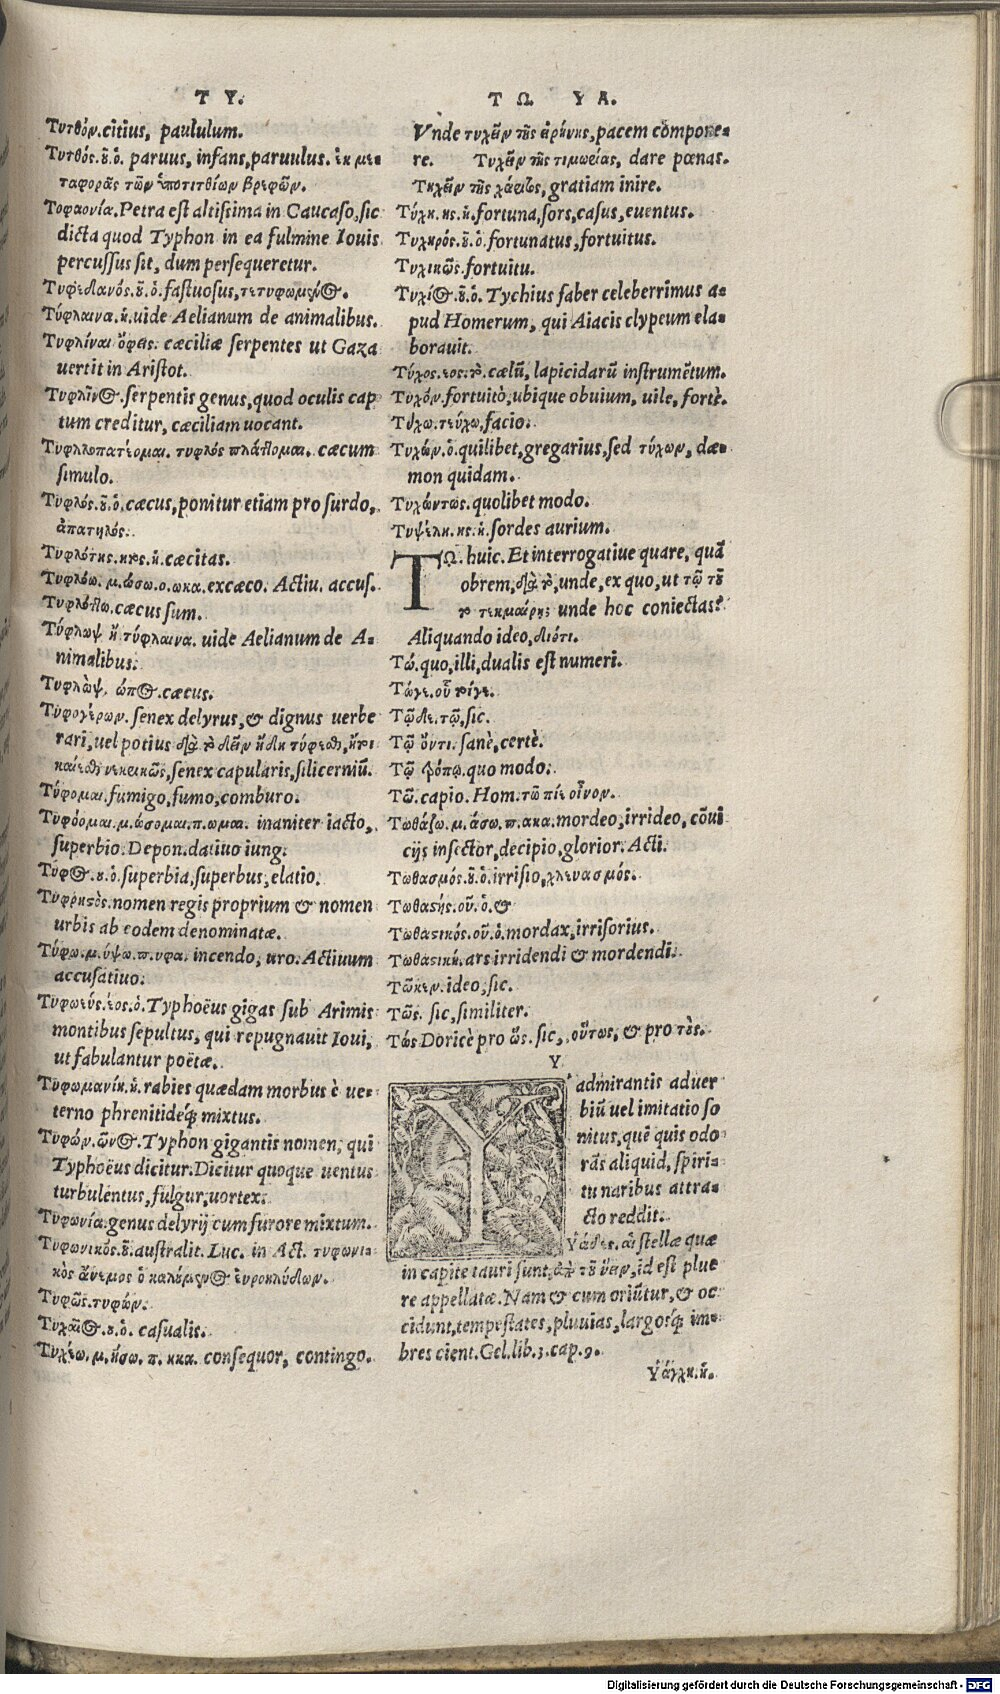 Τ Υ.
Τυτθόν. citius, paululum.
Τυτθός. ȣ͂. ὁ. paruus, infans, paruulus. ἐκ με-
ταφορᾶς τῶν ὑποτιτθίων βρεφῶν.
Τοφαονία. Petra est altissima in Caucaso, sic
dicta quod Typhon in ea fulmine Iouis
percussus sit, dum persequeretur.
Τυφεδανός. ȣ͂. ὁ. fastuosus, τετυφωμένος.
Τύφλαινα. ἡ. uide Aelianum de animalibus.
Τυφλίναι ὄφεις. cæciliæ serpentes ut Gaza
uertit in Aristot.
Τυφλῖνος. serpentis genus, quod oculis cap
tum creditur, cæciliam uocant.
Τυφλοπλατέομαι. τυφλός πλάττομαι. cæcum
simulo.
Τυφλός. ȣ͂. ὁ. cæcus, ponitur etiam pro surdo,
ἀπατηλός.
Τυφλότης. ητος. ἡ. cæcitas.
Τυφλόω. μ. ώσω. ο. ωκα. excæco. Actiu. accus.
Τυφλώττω. cæcus sum.
Τύφλωψ ἢ τύφλαινα. uide Aelianum de A-
nimalibus.
Τυφλώψ. ώπος. cæcus.
Τυφογέρων. senex delyrus, & dignus uerbe
rari, uel potius διὰ τὸ δεῖν ἤδη τύφεσθαι, ἤτοι
καίεσθαι νεκρικῶς, senex capularis, silicerniũ.
Τύφομαι. fumigo, fumo, comburo.
Τυφόομαι. μ. ώσομαι. π. ωμαι. inaniter iacto,
superbio. Depon. datiuo iung.
Τύφος. ȣ. ὁ. superbia, superbus, elatio.
Τυφρηστός. nomen regis proprium & nomen
urbis ab eodem denominatæ.
Τύφω. μ. ύψω. π. υφα. incendo, uro. Actiuum
accusatiuo.
Τυφωεύς. έος. ὁ. Typhoëus gigas sub Arimis
montibus sepultus, qui repugnauit Ioui,
ut fabulantur poëtæ.
Τυφωμανίη. ἡ. rabies quædam morbus è ue-
terno phrenitideq́; mixtus.
Τυφών. ῶνος. Typhon gigantis nomen, qui
Typhoëus dicitur. Dicitur quoque uentus
turbulentus, fulgur, uortex.
Τυφωνία. genus delyrij cum furore mixtum.
Τυφωνικός. ȣ͂. australit. Luc. in Act. τυφωνι-
κὸς ἄνεμος ὁ καλύμενος εὐροκλύδων.
Τυφῶς. τυφών.
Τυχαῖος. ȣ. ὁ. casualis.
Τυχέω. μ. ήσω. π. ηκα. consequor, contingo.
Τ Ω Υ Α.
Vnde τυχεῖν τῆς εἰρήνης, pacem compone-
re. Τυχεῖν τῆς τιμωρίας, dare pœnas.
Τυχεῖν τῆς χάριτος, gratiam inire.
Τύχη. ης. ἡ. fortuna, sors, casus, euentus.
Τυχηρός. ȣ͂. ὁ. fortunatus, fortuitus.
Τυχικῶς. fortuitu.
Τυχίος. ȣ. ὁ. Tychius faber celeberrimus a-
pud Homerum, qui Aiacis clypeum ela-
borauit.
Τύχος. εος. τὸ. cælũ, lapicidarũ instrumẽtum.
Τυχόν. fortuitò, ubique obuium, uile, fortè.
Τύχω. τεύχω, facio.
Τυχών. ὁ. quilibet, gregarius, sed τύχων, dæ-
mon quidam.
Τυχόντως. quolibet modo.
Τυψέλη. ης. ἡ. sordes aurium.
ΤΩ. huic. Et interrogatiue quare, quã
obrem, διὰ τὸ, unde, ex quo, ut τῷ τȣ͂
το τεκμαίρῃ; unde hoc coniectas?
Aliquando ideo, διότι.
Τώ. quo, illi, dualis est numeri.
Τώγε. οὗ τίγε.
Τῷδε. τῷ, sic.
Τῷ ὄντι. sanè, certè.
Τῷ τρόπῳ. quo modo.
Τῶ. capio. Hom. τῶ πίε οἶνον.
Τωθάζω. μ. άσω. π. ακα. mordeo, irrideo, cõui
cijs insector, decipio, glorior. Acti.
Τωθασμός. ȣ͂. ὁ. irrisio, χλευασμός.
Τωθαστής. οῦ. ὁ. &
Τωθαστικός. οῦ. ὁ. mordax, irrisorius.
Τωθαστική. ars irridendi & mordendi.
Τῶκεν. ideo, sic.
Τῶς. sic, similiter.
Τώς Doricè pro ὥς. sic, οὕτως, & pro τὸς.
Υ.
Υ admirantis aduer
biũ uel imitatio so
nitus, quẽ quis odo
rãs aliquid, spiri-
tu naribus attra-
cto reddit.
Ὑάδες. αἱ stellæ quæ
in capite tauri sunt, ἀπὸ τοῦ ὕειν, id est plue
re appellatæ. Nam & cum oriũtur, & oc
cidunt, tempestates, pluuias, largosq́; im-
bres cient. Gel. lib. 3. cap. 9.
Ὑάγλη. ἡ.
Digitalisierung gefördert durch die Deutsche Forschungsgemeinschaft - DFG